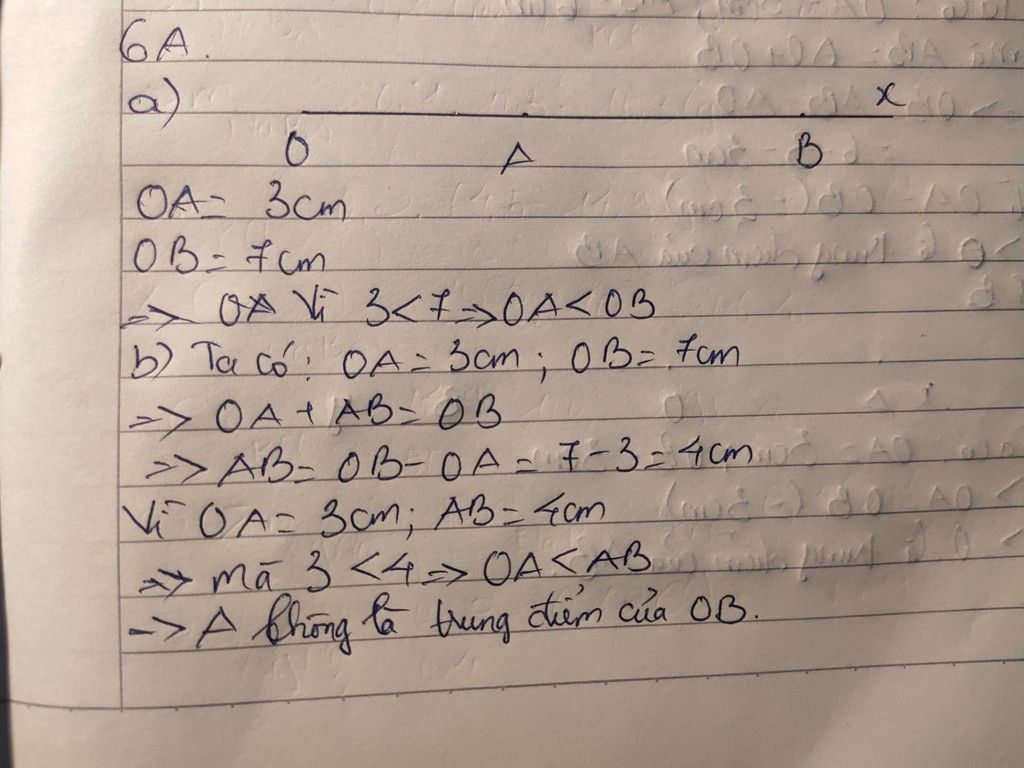 6A.
a)
x
O A B
OA = 3cm
OB = 7cm
=> OA Vì 3 < 7 => OA < OB
b) Ta có: OA = 3cm; OB = 7cm
=> OA + AB = OB
=> AB = OB - OA = 7 - 3 = 4cm
Vì OA = 3cm; AB = 4cm
=> mà 3 < 4 => OA < AB
-> A không là trung điểm của OB.